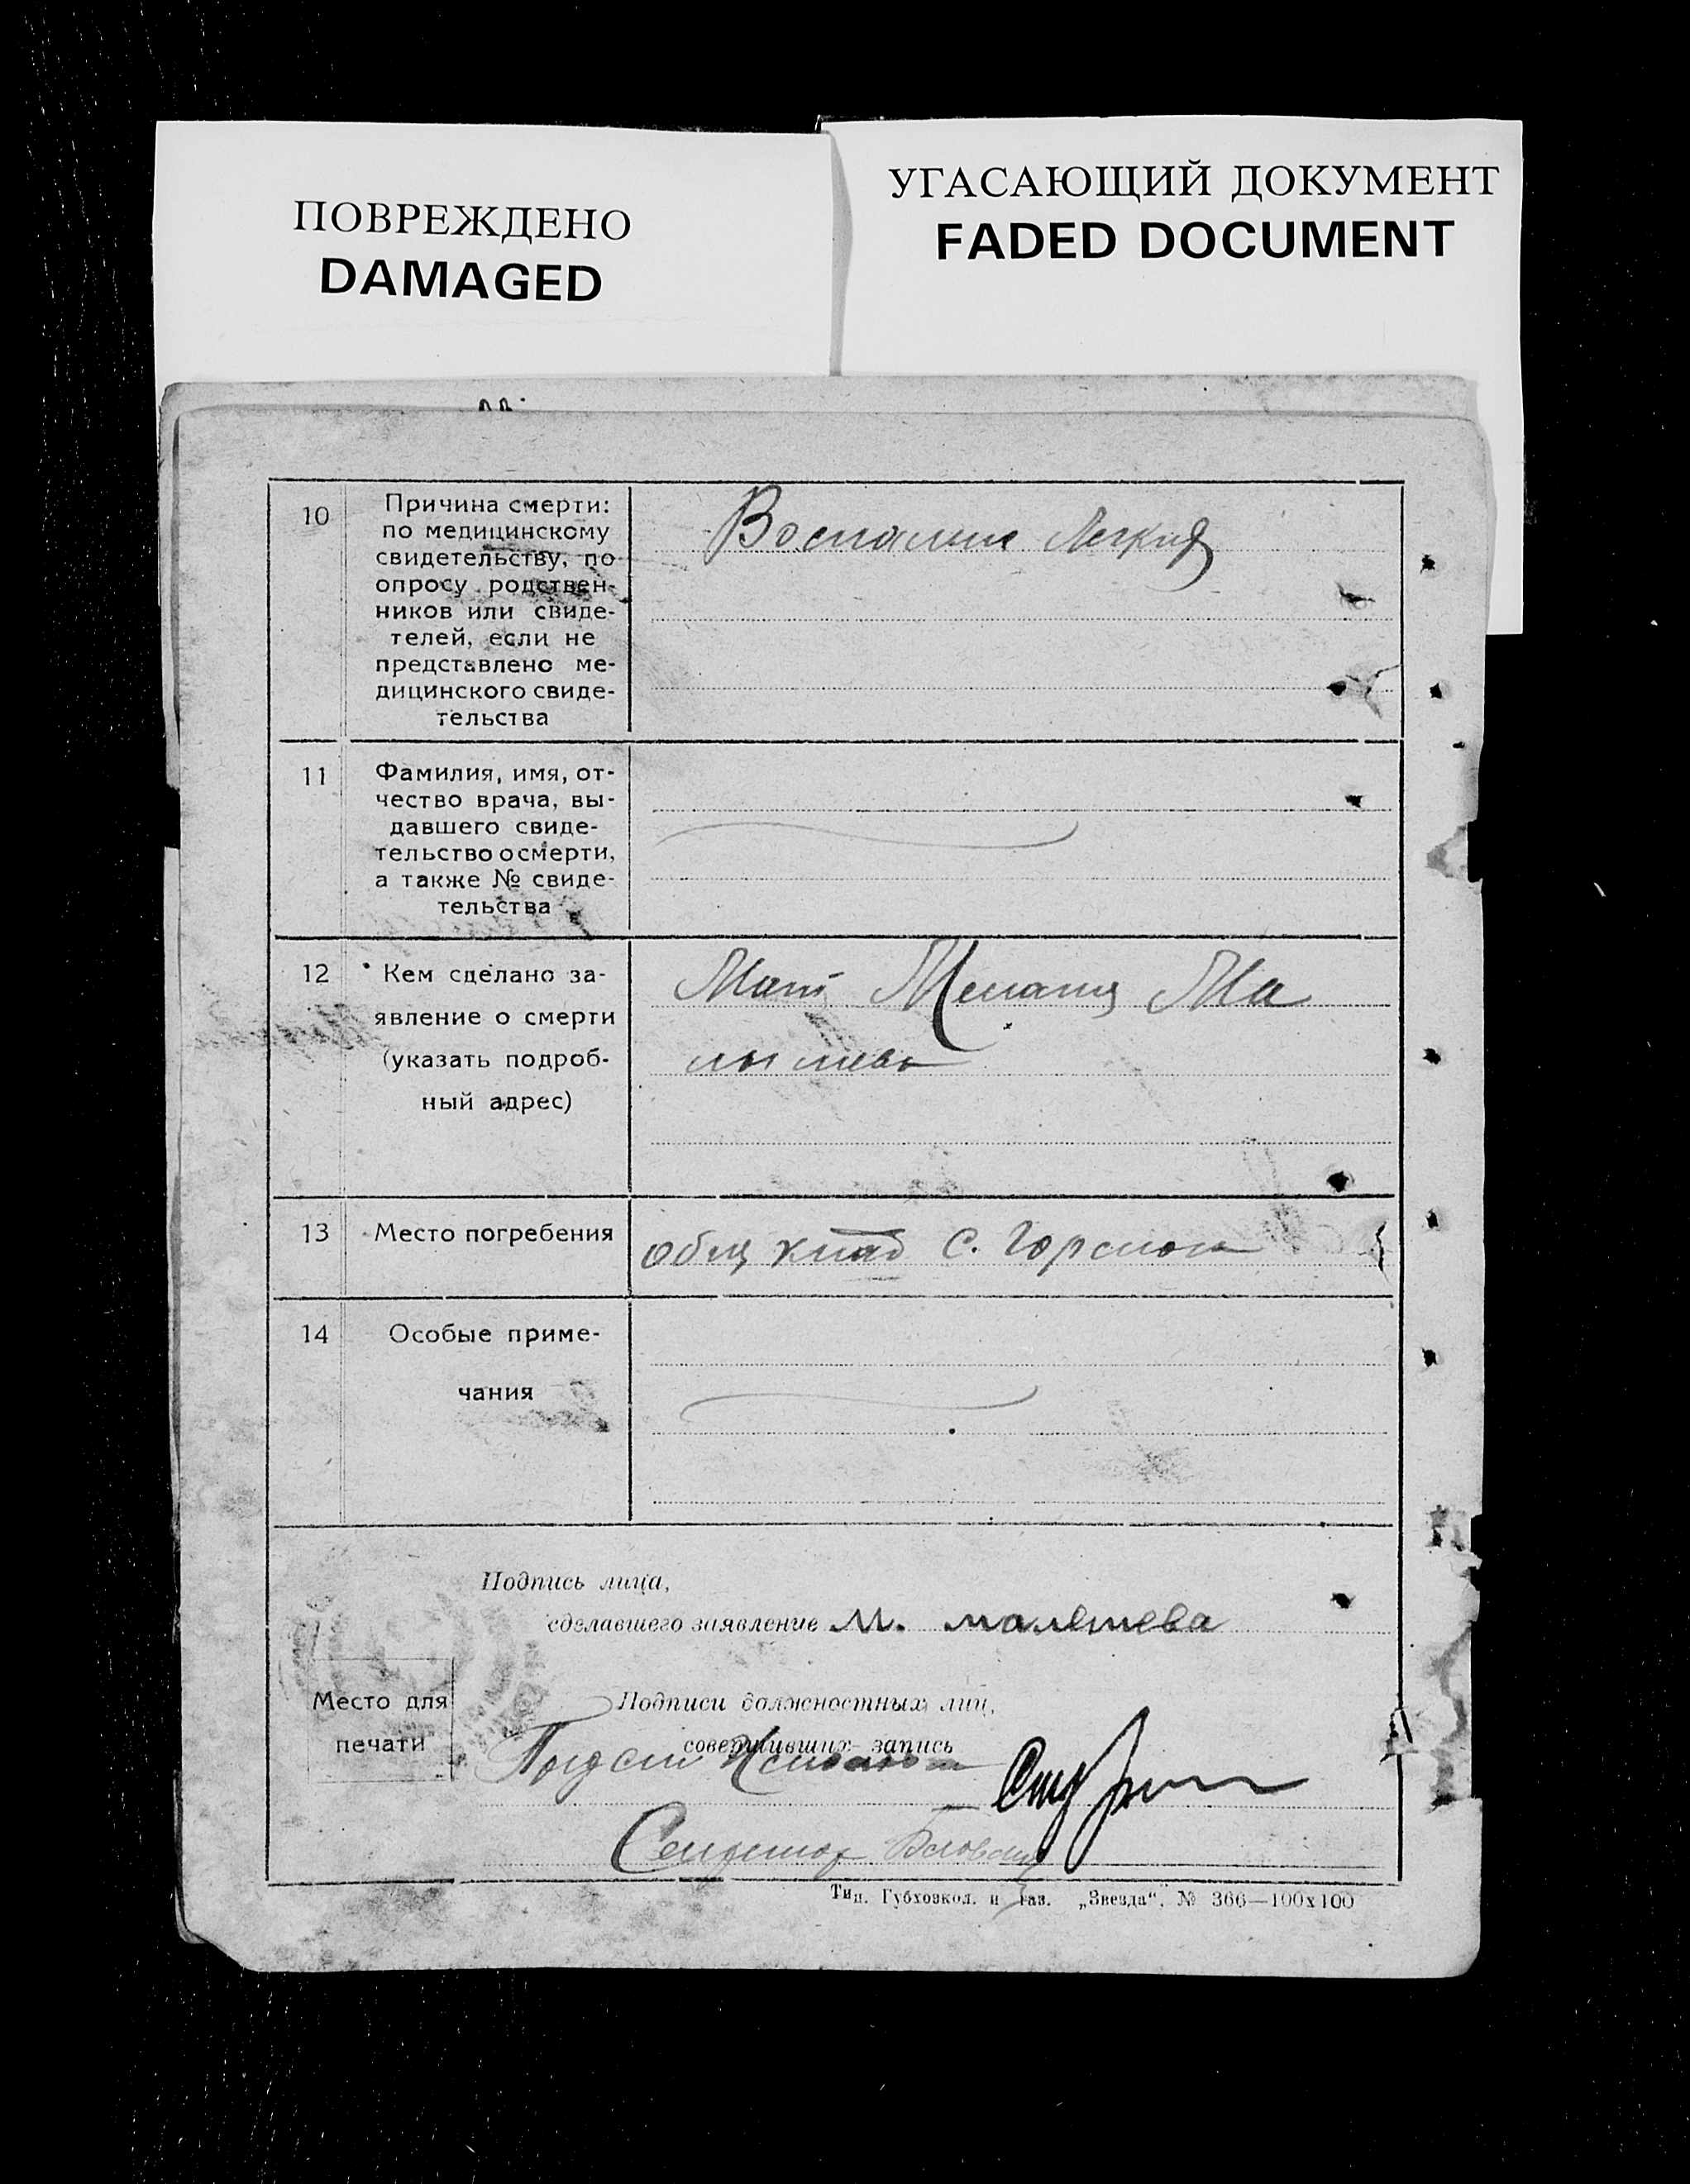 ПОВРЕЖДЕНО
DAMAGED
УГАСАЮЩИЙ ДОКУМЕНТ
FADED DOCUMENT
10
Причина смерти:
по медицинскому
свидетельству, по
опросу родствен-
ников или свиде-
телей, если не
представлено ме-
дицинского свиде-
тельства
Воспаление Легких
11
Фамилия, имя, от-
чество врача, вы-
давшего свиде-
тельство о смерти,
а также № свиде-
тельства
12
Кем сделано за-
явление о смерти
(указать подроб-
ный адрес)
Мать Ма
лышева
13
Место погребения
общ клад с.
14
Особые приме-
чания
Подпись лица,
сделавшего заявление М. малышева
Место для
печати
Подписи должностных лиц,
совершивших запись
Секретарь
Тип. Губхозкол. и газ. „Звезда“. № 366—100х100